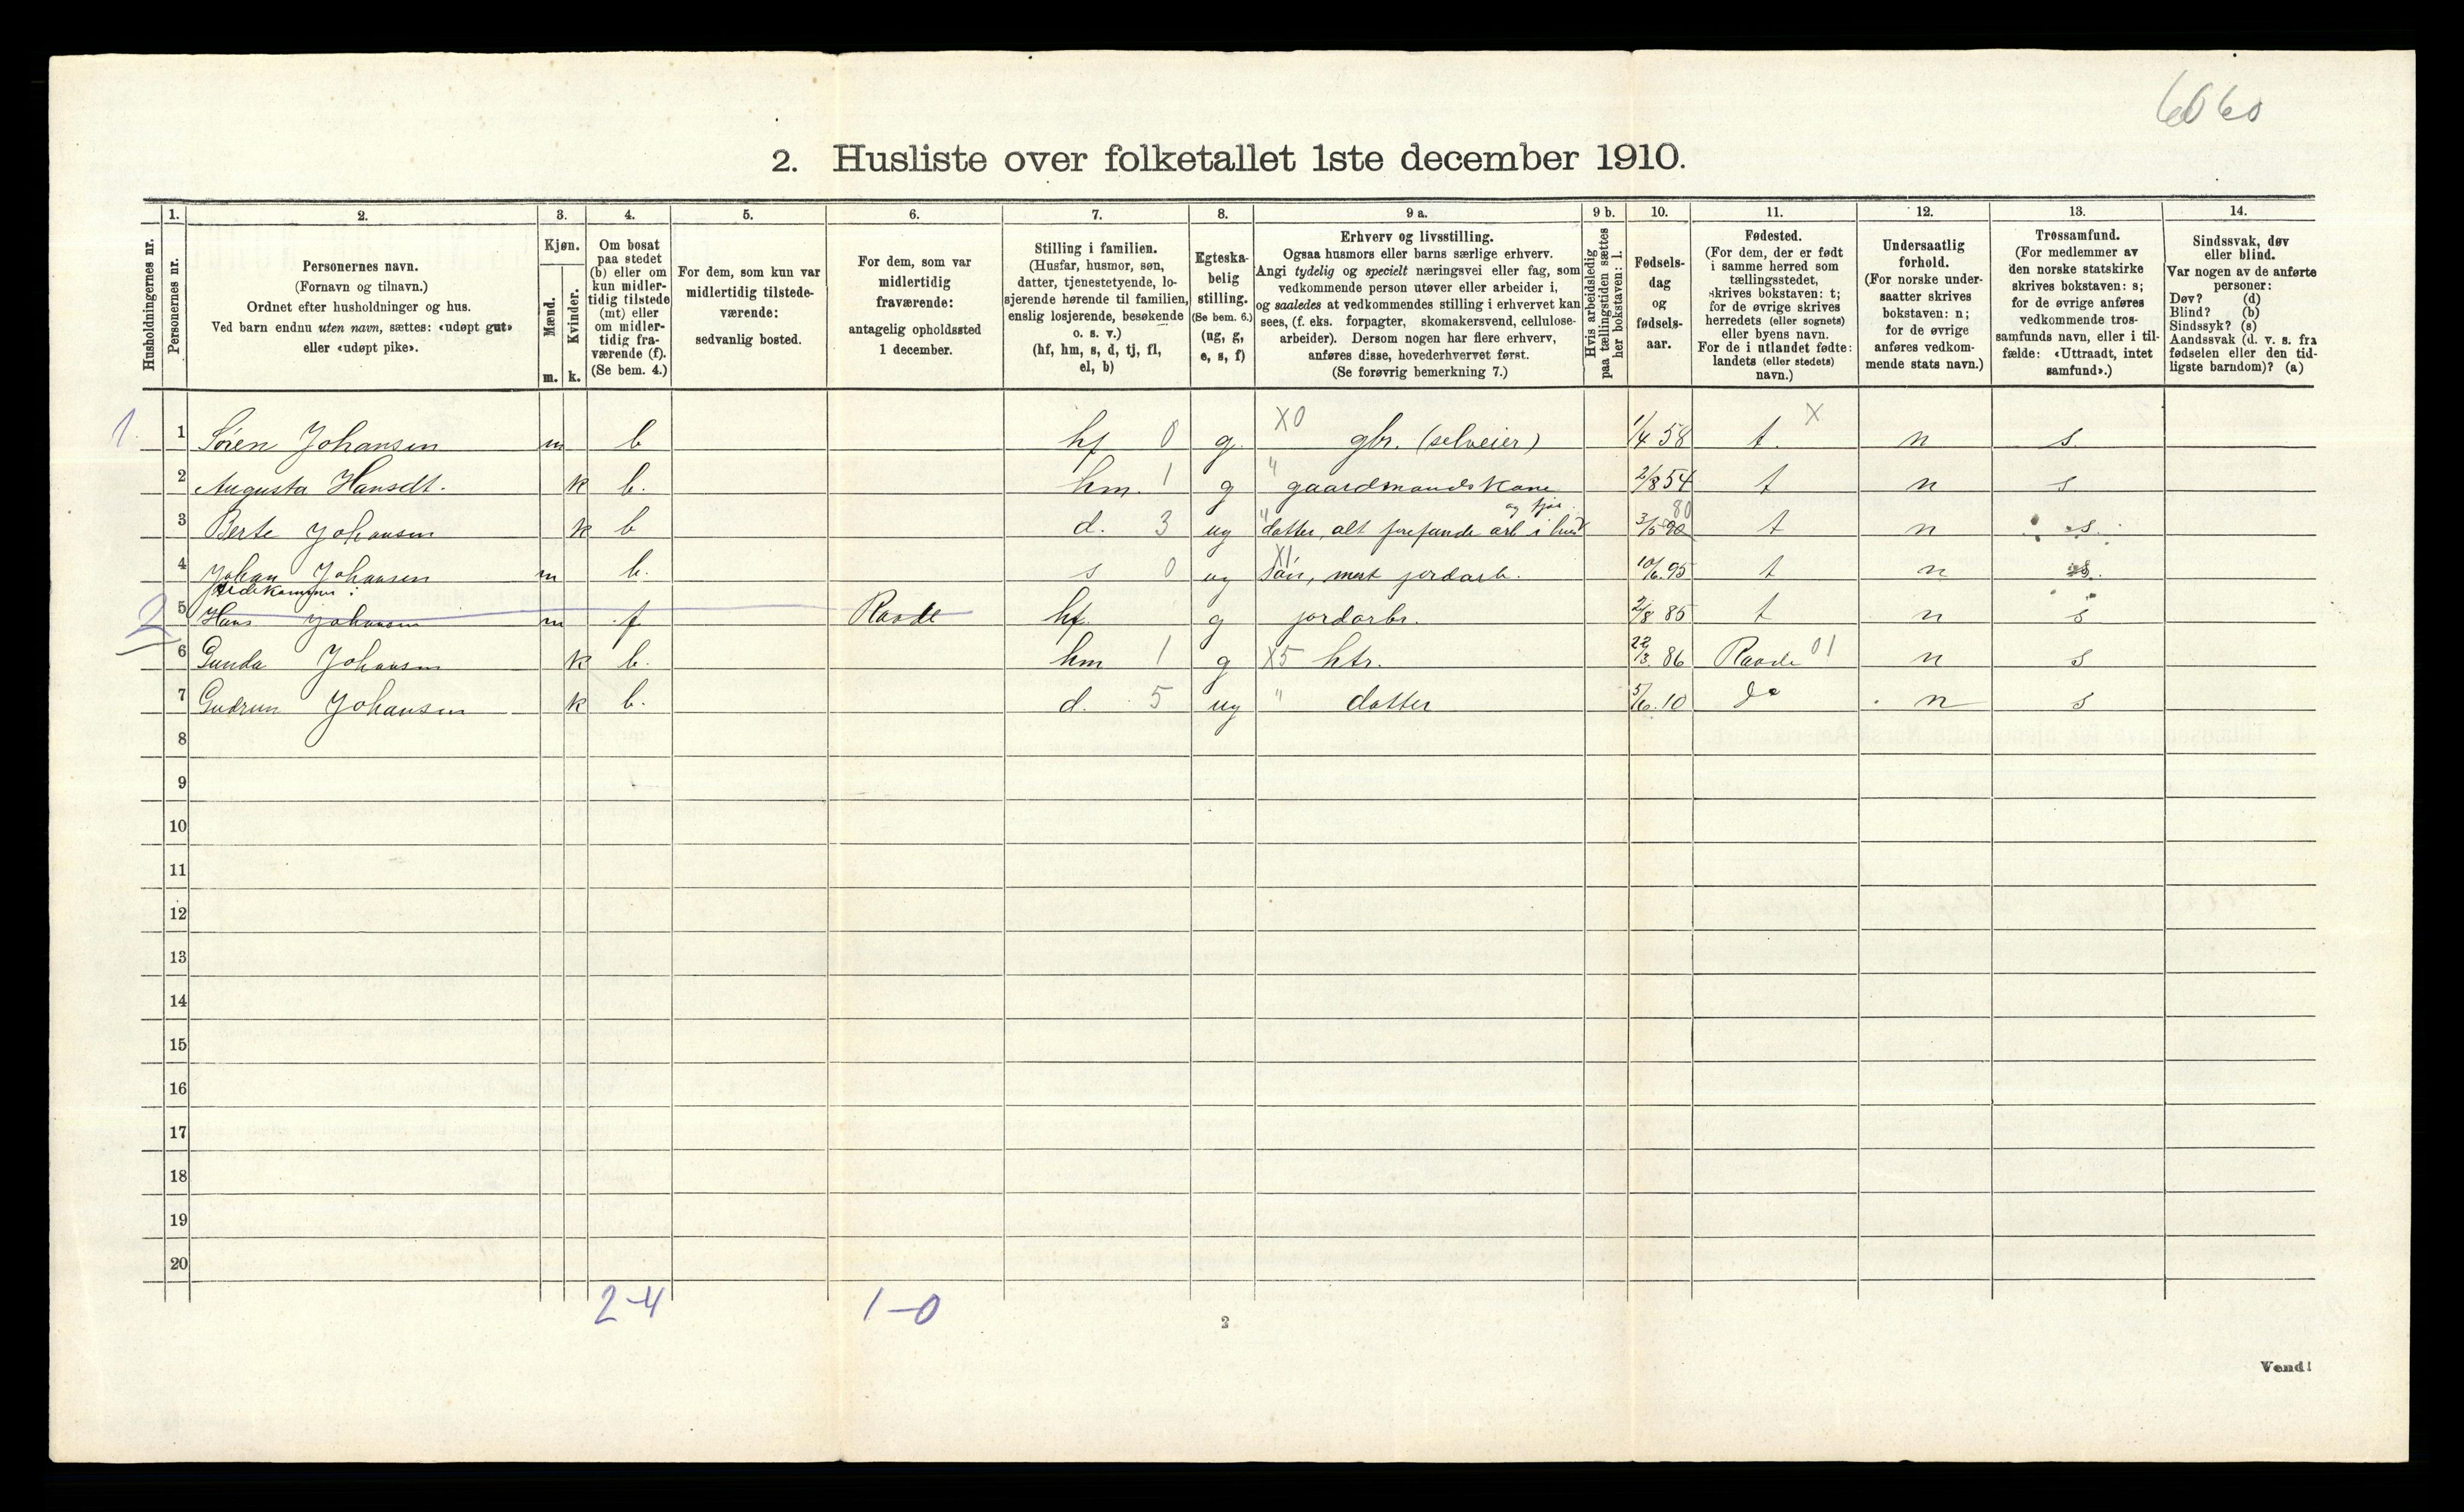 6060
2. Husliste over folketallet 1ste december 1910.
Husholdningernes nr.
1. Personernes nr.
2. Personernes navn.
(Fornavn og tilnavn.)
Ordnet efter husholdninger og hus.
Ved barn endnu uten navn, sættes: «udøpt gut»
eller «udøpt pike».
3. Kjøn.
Mænd. m.
Kvinder. k.
4. Om bosat
paa stedet
(b) eller om
kun midler-
tidig tilstede
(mt) eller
om midler-
tidig fra-
værende (f).
(Se bem. 4.)
5. For dem, som kun var
midlertidig tilstede-
værende:
sedvanlig bosted.
6. For dem, som var
midlertidig
fraværende:
antagelig opholdssted
1 december.
7. Stilling i familien.
(Husfar, husmor, søn,
datter, tjenestetyende, lo-
sjerende hørende til familien,
enslig losjerende, besøkende
o. s. v.)
(hf, hm, s, d, tj, fl,
el, b)
8. Egteska-
belig
stilling.
(Se bem. 6.)
(ug, g,
e, s, f)
9 a. Erhverv og livsstilling.
Ogsaa husmors eller barns særlige erhverv.
Angi tydelig og specielt næringsvei eller fag, som
vedkommende person utøver eller arbeider i,
og saaledes at vedkommendes stilling i erhvervet kan
sees, (f. eks. forpagter, skomakersvend, cellulose-
arbeider). Dersom nogen har flere erhverv,
anføres disse, hovederhvervet først.
(Se forøvrig bemerkning 7.)
9 b. Hvis arbeidsledig
paa tællingstiden sættes
her bokstaven: l.
10. Fødsels-
dag
og
fødsels-
aar.
11. Fødested.
(For dem, der er født
i samme herred som
tællingsstedet,
skrives bokstaven: t;
for de øvrige skrives
herredets (eller sognets)
eller byens navn.
For de i utlandet fødte:
landets (eller stedets)
navn.)
12. Undersaatlig
forhold.
(For norske under-
saatter skrives
bokstaven: n;
for de øvrige
anføres vedkom-
mende stats navn.)
13. Trossamfund.
(For medlemmer av
den norske statskirke
skrives bokstaven: s;
for de øvrige anføres
vedkommende tros-
samfunds navn, eller i til-
fælde: «Uttraadt, intet
samfund».)
14. Sindssvak, døv
eller blind.
Var nogen av de anførte
personer:
Døv? (d)
Blind? (b)
Sindssyk? (s)
Aandssvak (d. v. s. fra
fødselen eller den tid-
ligste barndom)? (a)
1 1 Søren Johansen m b hf 0 g X0 gbr. (selveier) 1/4 58 t. X n s
2 Augusta Hansdt. k b. hm. 1 g " gaardmandskone 2/8 54 t n s
3 Berte Johansen k b d. 3 ug " datter, alt arb i hus og 3/5 90 80 t n s
4 Johan Johansen m b. s 0 ug X1 søn, mest jordarb. 10/6.95 t n s.
2 5 Hans Johansen m f Raade hf. g jordarbr. 2/8 85 t n s
6 Gunda Johansen k b. hm 1 g X5 htr. 22/3. 86 Raade 01 n s
7 Gudrun Johansen k b. d. 5 ug " datter 5/6.10 do n s
8
9
10
11
12
13
14
15
16
17
18
19
20
2-4 1-0
2
Vend!